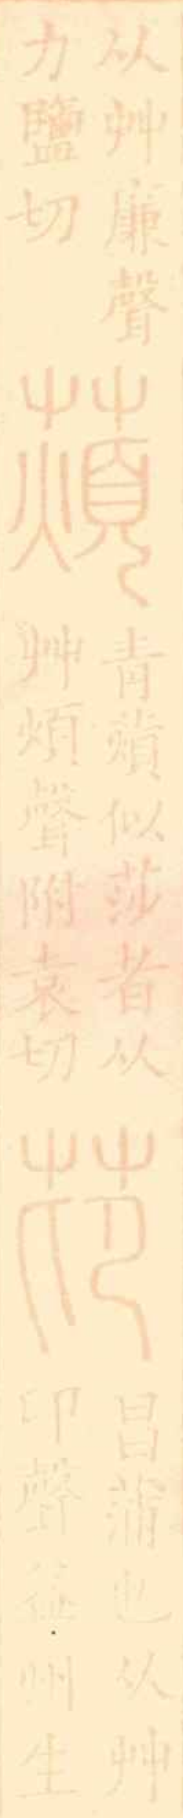 从艸廉聲
力鹽切
薠
青薠似莎者从
艸煩聲附袁切
茚
昌蒲也从艸
卬聲益州生